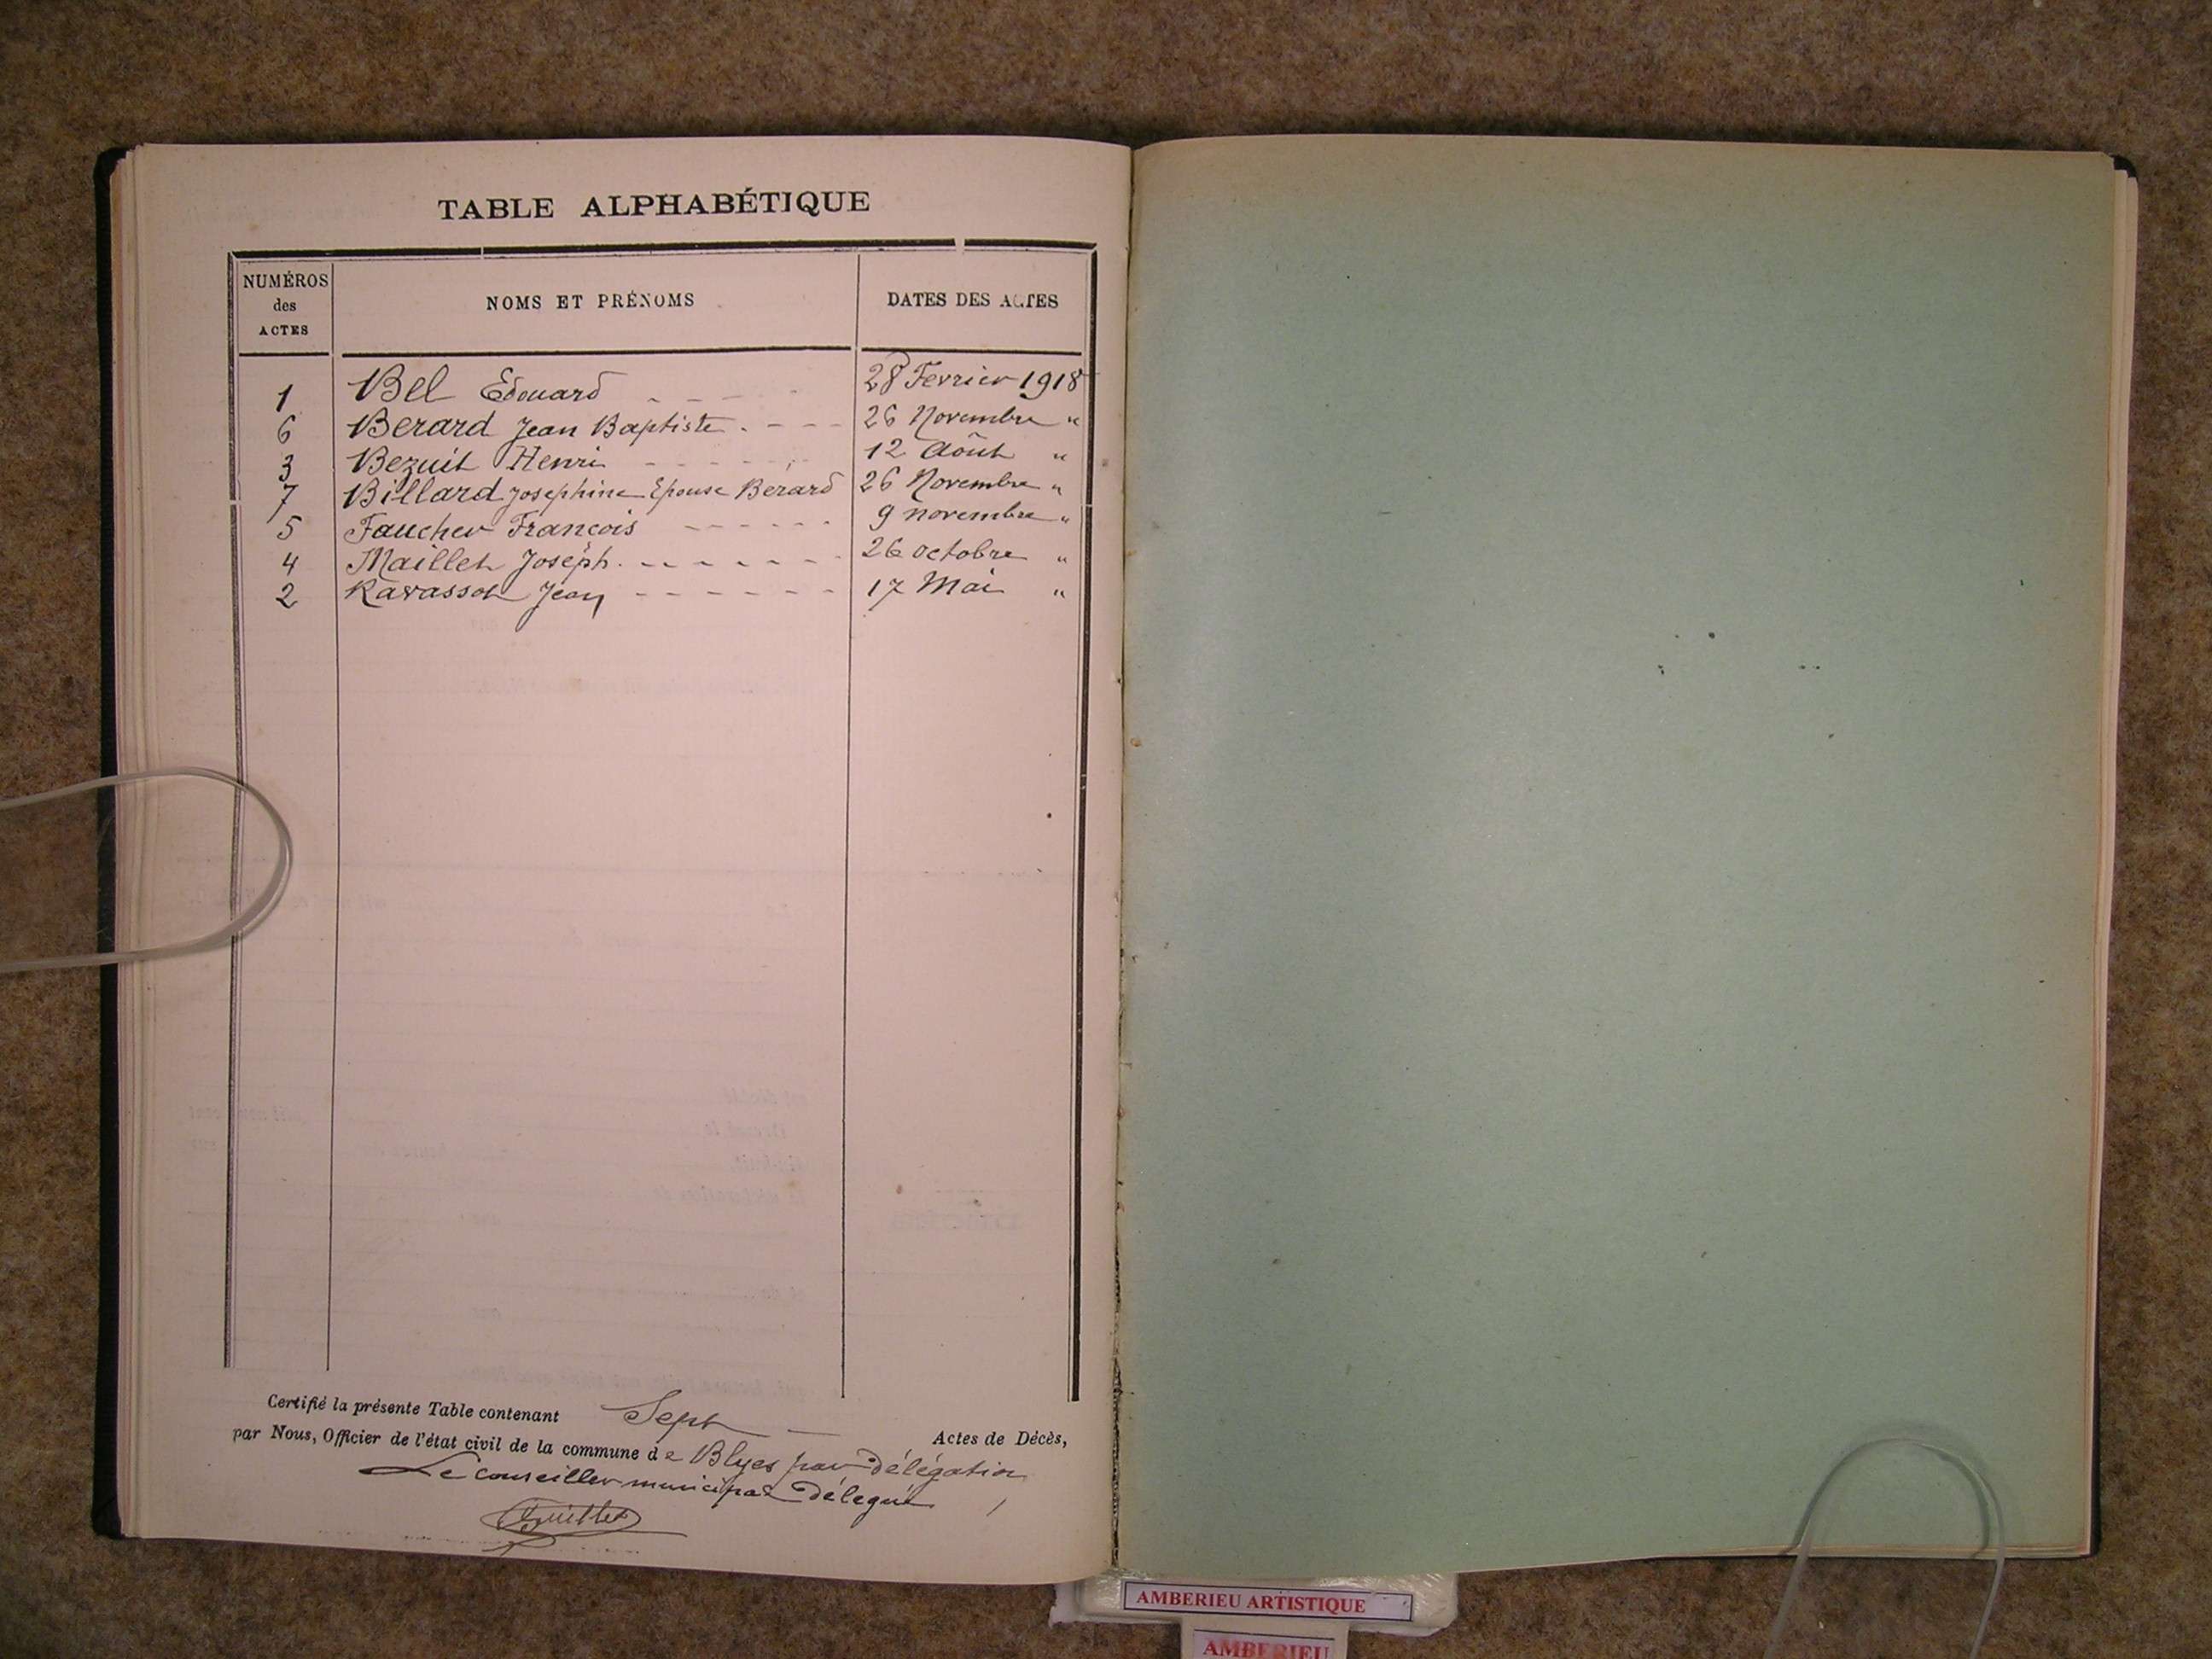 TABLE ALPHABÉTIQUE
NUMÉROS
des
ACTES
NOMS ET PRÉNOMS
DATES DES ACTES
1 Bel Edouard 28 Fevrier 1918
6 Berard Jean Baptiste 26 Novembre "
3 Bezuit Henri 12 Aôut "
7 Billard Josephine Epouse Bérard 26 Novembre "
5 Faucher François 9 novembre "
4 Maillet Joseph 26 octobre "
2 Ravassot Jean 17 Mai "
Certifié la présente Table contenant Sept Actes de Décès,
par Nous, Officier de l'état civil de la commune de Blyes par délégation
Le conseiller municipal délegué
AMBERIEU ARTISTIQUE
AMBERIEU